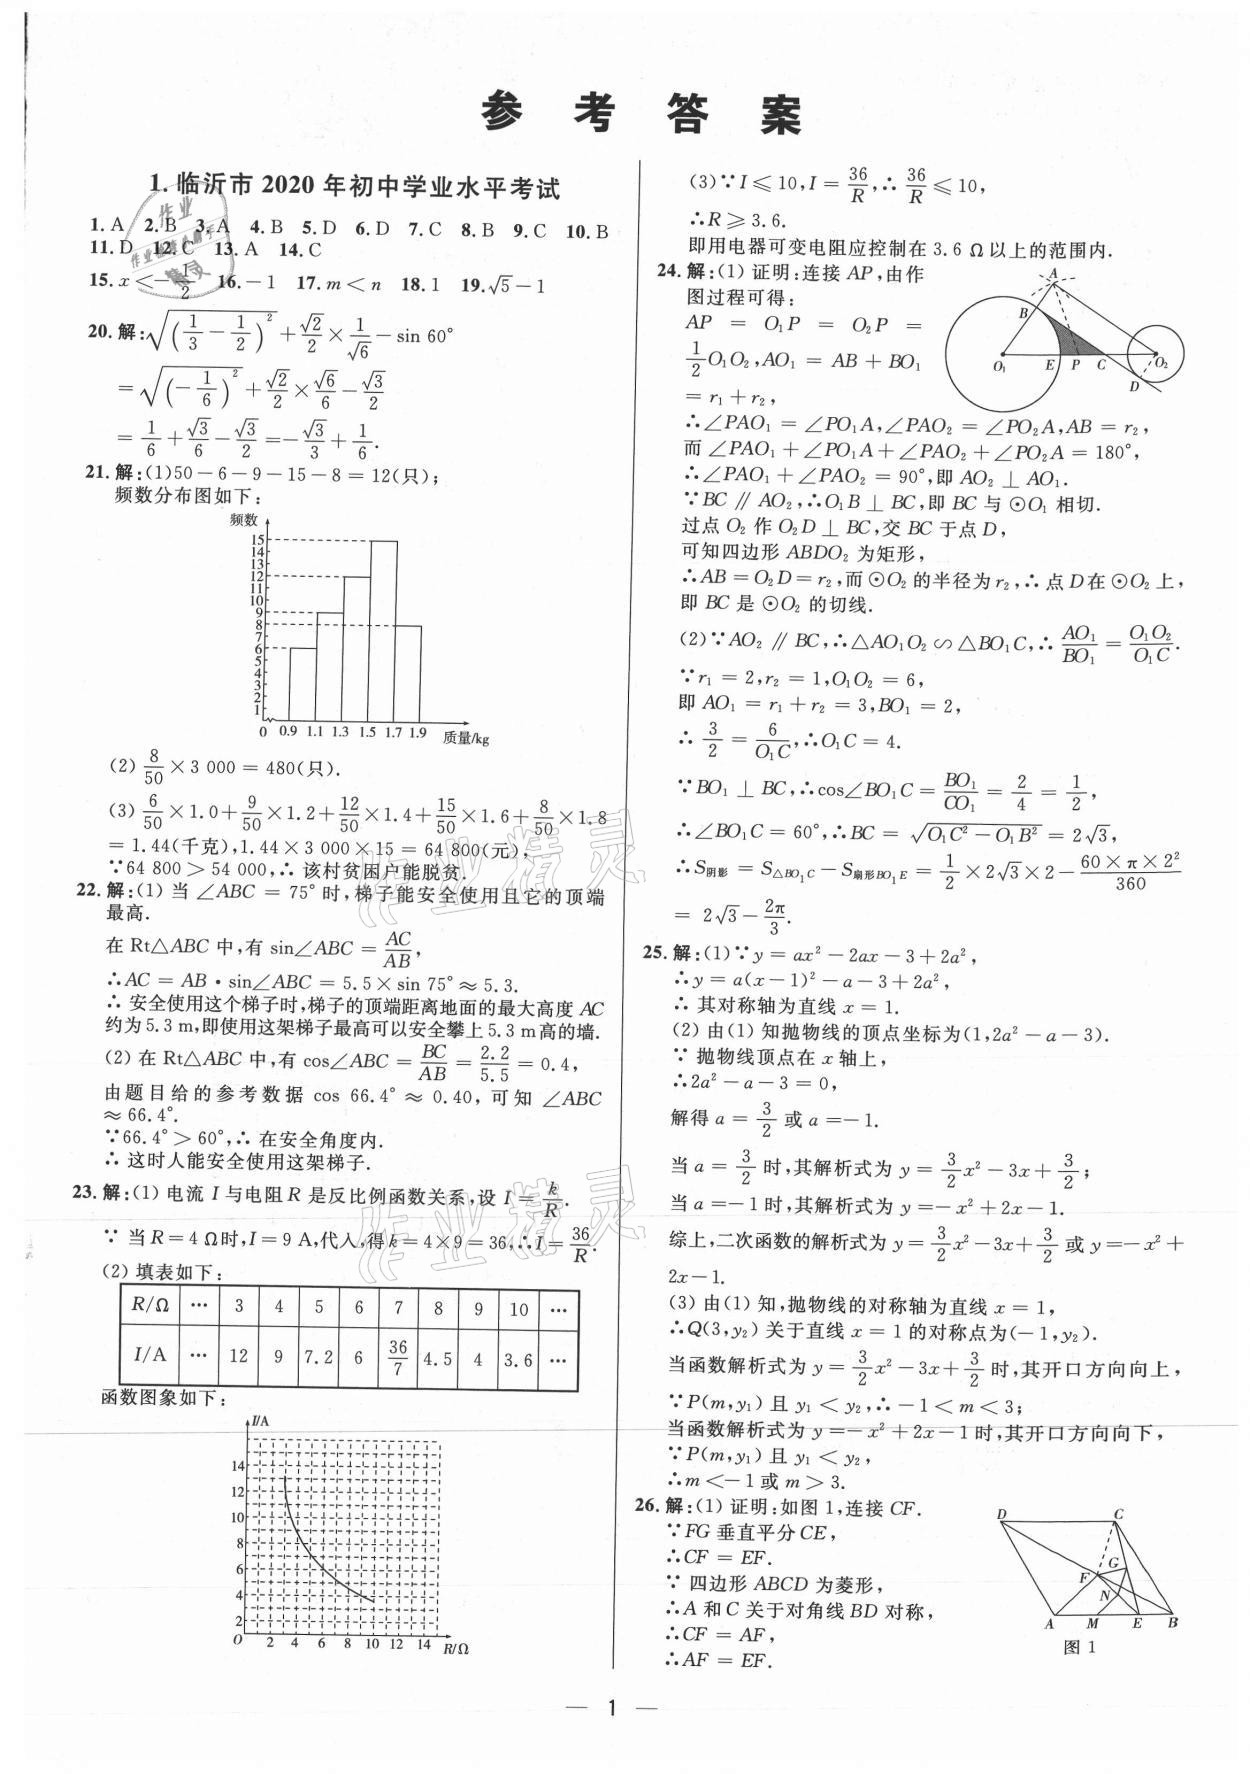 参 考 答 案
1. 临沂市 2020 年初中学业水平考试
1. A 2. B 3. A 4. B 5. D 6. D 7. C 8. B 9. C 10. B
11. D 12. C 13. A 14. C
15. x<-1/2 16. -1 17. m<n 18. 1 19. √5-1
20. 解:√((1/3-1/2)²)+√2/2×1/√6-sin 60°
=√((-1/6)²)+√2/2×√6/6-√3/2
=1/6+√3/6-√3/2=-√3/3+1/6.
21. 解:(1)50-6-9-15-8=12(只);
频数分布图如下:
频数
15
14
13
12
11
10
9
8
7
6
5
4
3
2
1
0 0.9 1.1 1.3 1.5 1.7 1.9 质量/kg
(2) 8/50×3 000=480(只).
(3) 6/50×1.0+9/50×1.2+12/50×1.4+15/50×1.6+8/50×1.8
=1.44(千克),1.44×3 000×15=64 800(元),
∵64 800>54 000,∴ 该村贫困户能脱贫.
22. 解:(1) 当 ∠ABC=75°时,梯子能安全使用且它的顶端
最高.
在 Rt△ABC 中,有 sin∠ABC=AC/AB,
∴AC=AB·sin∠ABC=5.5×sin 75°≈5.3.
∴ 安全使用这个梯子时,梯子的顶端距离地面的最大高度 AC
约为 5.3 m,即使用这架梯子最高可以安全攀上 5.3 m 高的墙.
(2) 在 Rt△ABC 中,有 cos∠ABC=BC/AB=2.2/5.5=0.4,
由题目给的参考数据 cos 66.4°≈0.40,可知 ∠ABC
≈66.4°.
∵66.4°>60°,∴ 在安全角度内.
∴ 这时人能安全使用这架梯子.
23. 解:(1) 电流 I 与电阻 R 是反比例函数关系,设 I=k/R.
∵ 当 R=4 Ω时,I=9 A,代入,得 k=4×9=36,∴I=36/R.
(2) 填表如下:
R/Ω … 3 4 5 6 7 8 9 10 …
I/A … 12 9 7.2 6 36/7 4.5 4 3.6 …
函数图象如下:
I/A
14
12
10
8
6
4
2
O 2 4 6 8 10 12 14 R/Ω
(3)∵I≤10,I=36/R,∴36/R≤10,
∴R≥3.6.
即用电器可变电阻应控制在 3.6 Ω 以上的范围内.
24. 解:(1) 证明:连接 AP,由作
图过程可得:
AP=O₁P=O₂P=
1/2 O₁O₂,AO₁=AB+BO₁
=r₁+r₂,
A
B
O₁ E P C O₂
D
∴∠PAO₁=∠PO₁A,∠PAO₂=∠PO₂A,AB=r₂,
而 ∠PAO₁+∠PO₁A+∠PAO₂+∠PO₂A=180°,
∴∠PAO₁+∠PAO₂=90°,即 AO₂⊥AO₁.
∵BC∥AO₂,∴O₁B⊥BC,即 BC 与 ⊙O₁ 相切.
过点 O₂ 作 O₂D⊥BC,交 BC 于点 D,
可知四边形 ABDO₂ 为矩形,
∴AB=O₂D=r₂,而⊙O₂ 的半径为 r₂,∴点 D 在⊙O₂ 上,
即 BC 是 ⊙O₂ 的切线.
(2)∵AO₂∥BC,∴△AO₁O₂∽△BO₁C,∴AO₁/BO₁=O₁O₂/O₁C.
∵r₁=2,r₂=1,O₁O₂=6,
即 AO₁=r₁+r₂=3,BO₁=2,
∴3/2=6/O₁C,∴O₁C=4.
∵BO₁⊥BC,∴cos∠BO₁C=BO₁/CO₁=2/4=1/2,
∴∠BO₁C=60°,∴BC=√(O₁C²-O₁B²)=2√3,
∴S阴影=S△BO₁C-S扇形BO₁E=1/2×2√3×2-(60×π×2²)/360
=2√3-2π/3.
25. 解:(1)∵y=ax²-2ax-3+2a²,
∴y=a(x-1)²-a-3+2a²,
∴ 其对称轴为直线 x=1.
(2) 由(1) 知抛物线的顶点坐标为(1,2a²-a-3).
∵ 抛物线顶点在 x 轴上,
∴2a²-a-3=0,
解得 a=3/2 或 a=-1.
当 a=3/2 时,其解析式为 y=3/2x²-3x+3/2;
当 a=-1 时,其解析式为 y=-x²+2x-1.
综上,二次函数的解析式为 y=3/2x²-3x+3/2 或 y=-x²+
2x-1.
(3) 由(1) 知,抛物线的对称轴为直线 x=1,
∴Q(3,y₂) 关于直线 x=1 的对称点为(-1,y₂).
当函数解析式为 y=3/2x²-3x+3/2 时,其开口方向向上,
∵P(m,y₁) 且 y₁<y₂,∴-1<m<3;
当函数解析式为 y=-x²+2x-1 时,其开口方向向下,
∵P(m,y₁) 且 y₁<y₂,
∴m<-1 或 m>3.
26. 解:(1) 证明:如图 1,连接 CF.
∵FG 垂直平分 CE,
∴CF=EF.
∵ 四边形 ABCD 为菱形,
∴A 和 C 关于对角线 BD 对称,
∴CF=AF,
∴AF=EF.
D C
G
F
N
A M E B
图 1
— 1 —
作业精灵
作业精灵